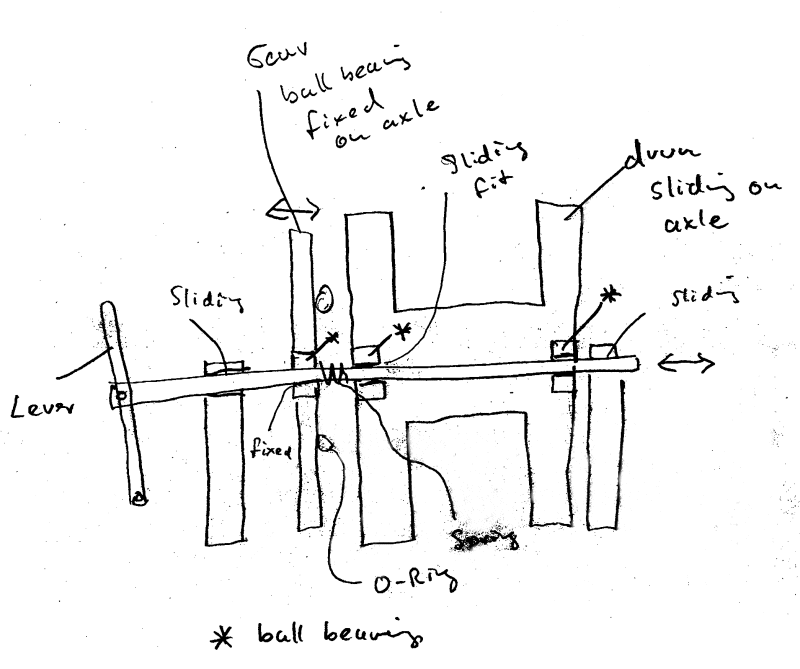 Gear
ball bearing
fixed
on axle
sliding
fit
drum
sliding on
axle
*
*
*
Sliding
sliding
Lever
fixed
Spring
O-Ring
* ball bearing